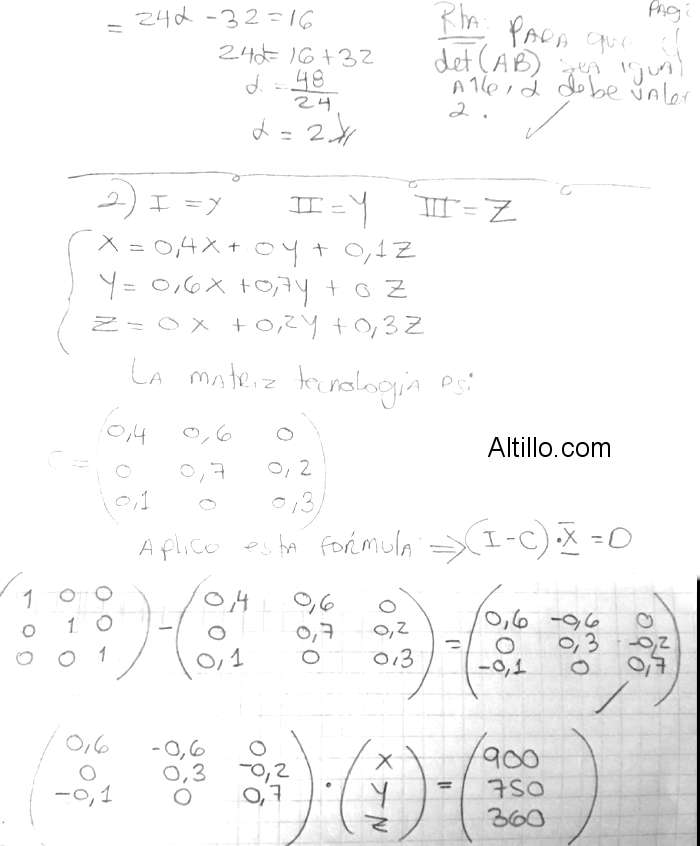 = 24α - 32 = 16
24α = 16 + 32
α = 48/24
α = 2
Pag:
Rta: PARA que el
det(AB) sea igual
A 16, α debe valer
2.
2) I = x II = Y III = Z
X = 0,4X + 0Y + 0,1Z
Y = 0,6X + 0,7Y + 0Z
Z = 0X + 0,2Y + 0,3Z
LA MATRIZ tecnología es:
C = (0,4 0,6 0
0 0,7 0,2
0,1 0 0,3)
Altillo.com
Aplico esta fórmula ⇒ (I - C) · X = D
(1 0 0 - (0,4 0,6 0 = (0,6 -0,6 0
0 1 0 0 0,7 0,2 0 0,3 -0,2
0 0 1) 0,1 0 0,3) -0,1 0 0,7)
(0,6 -0,6 0 · (x = (900
0 0,3 -0,2 y 750
-0,1 0 0,7) z) 360)